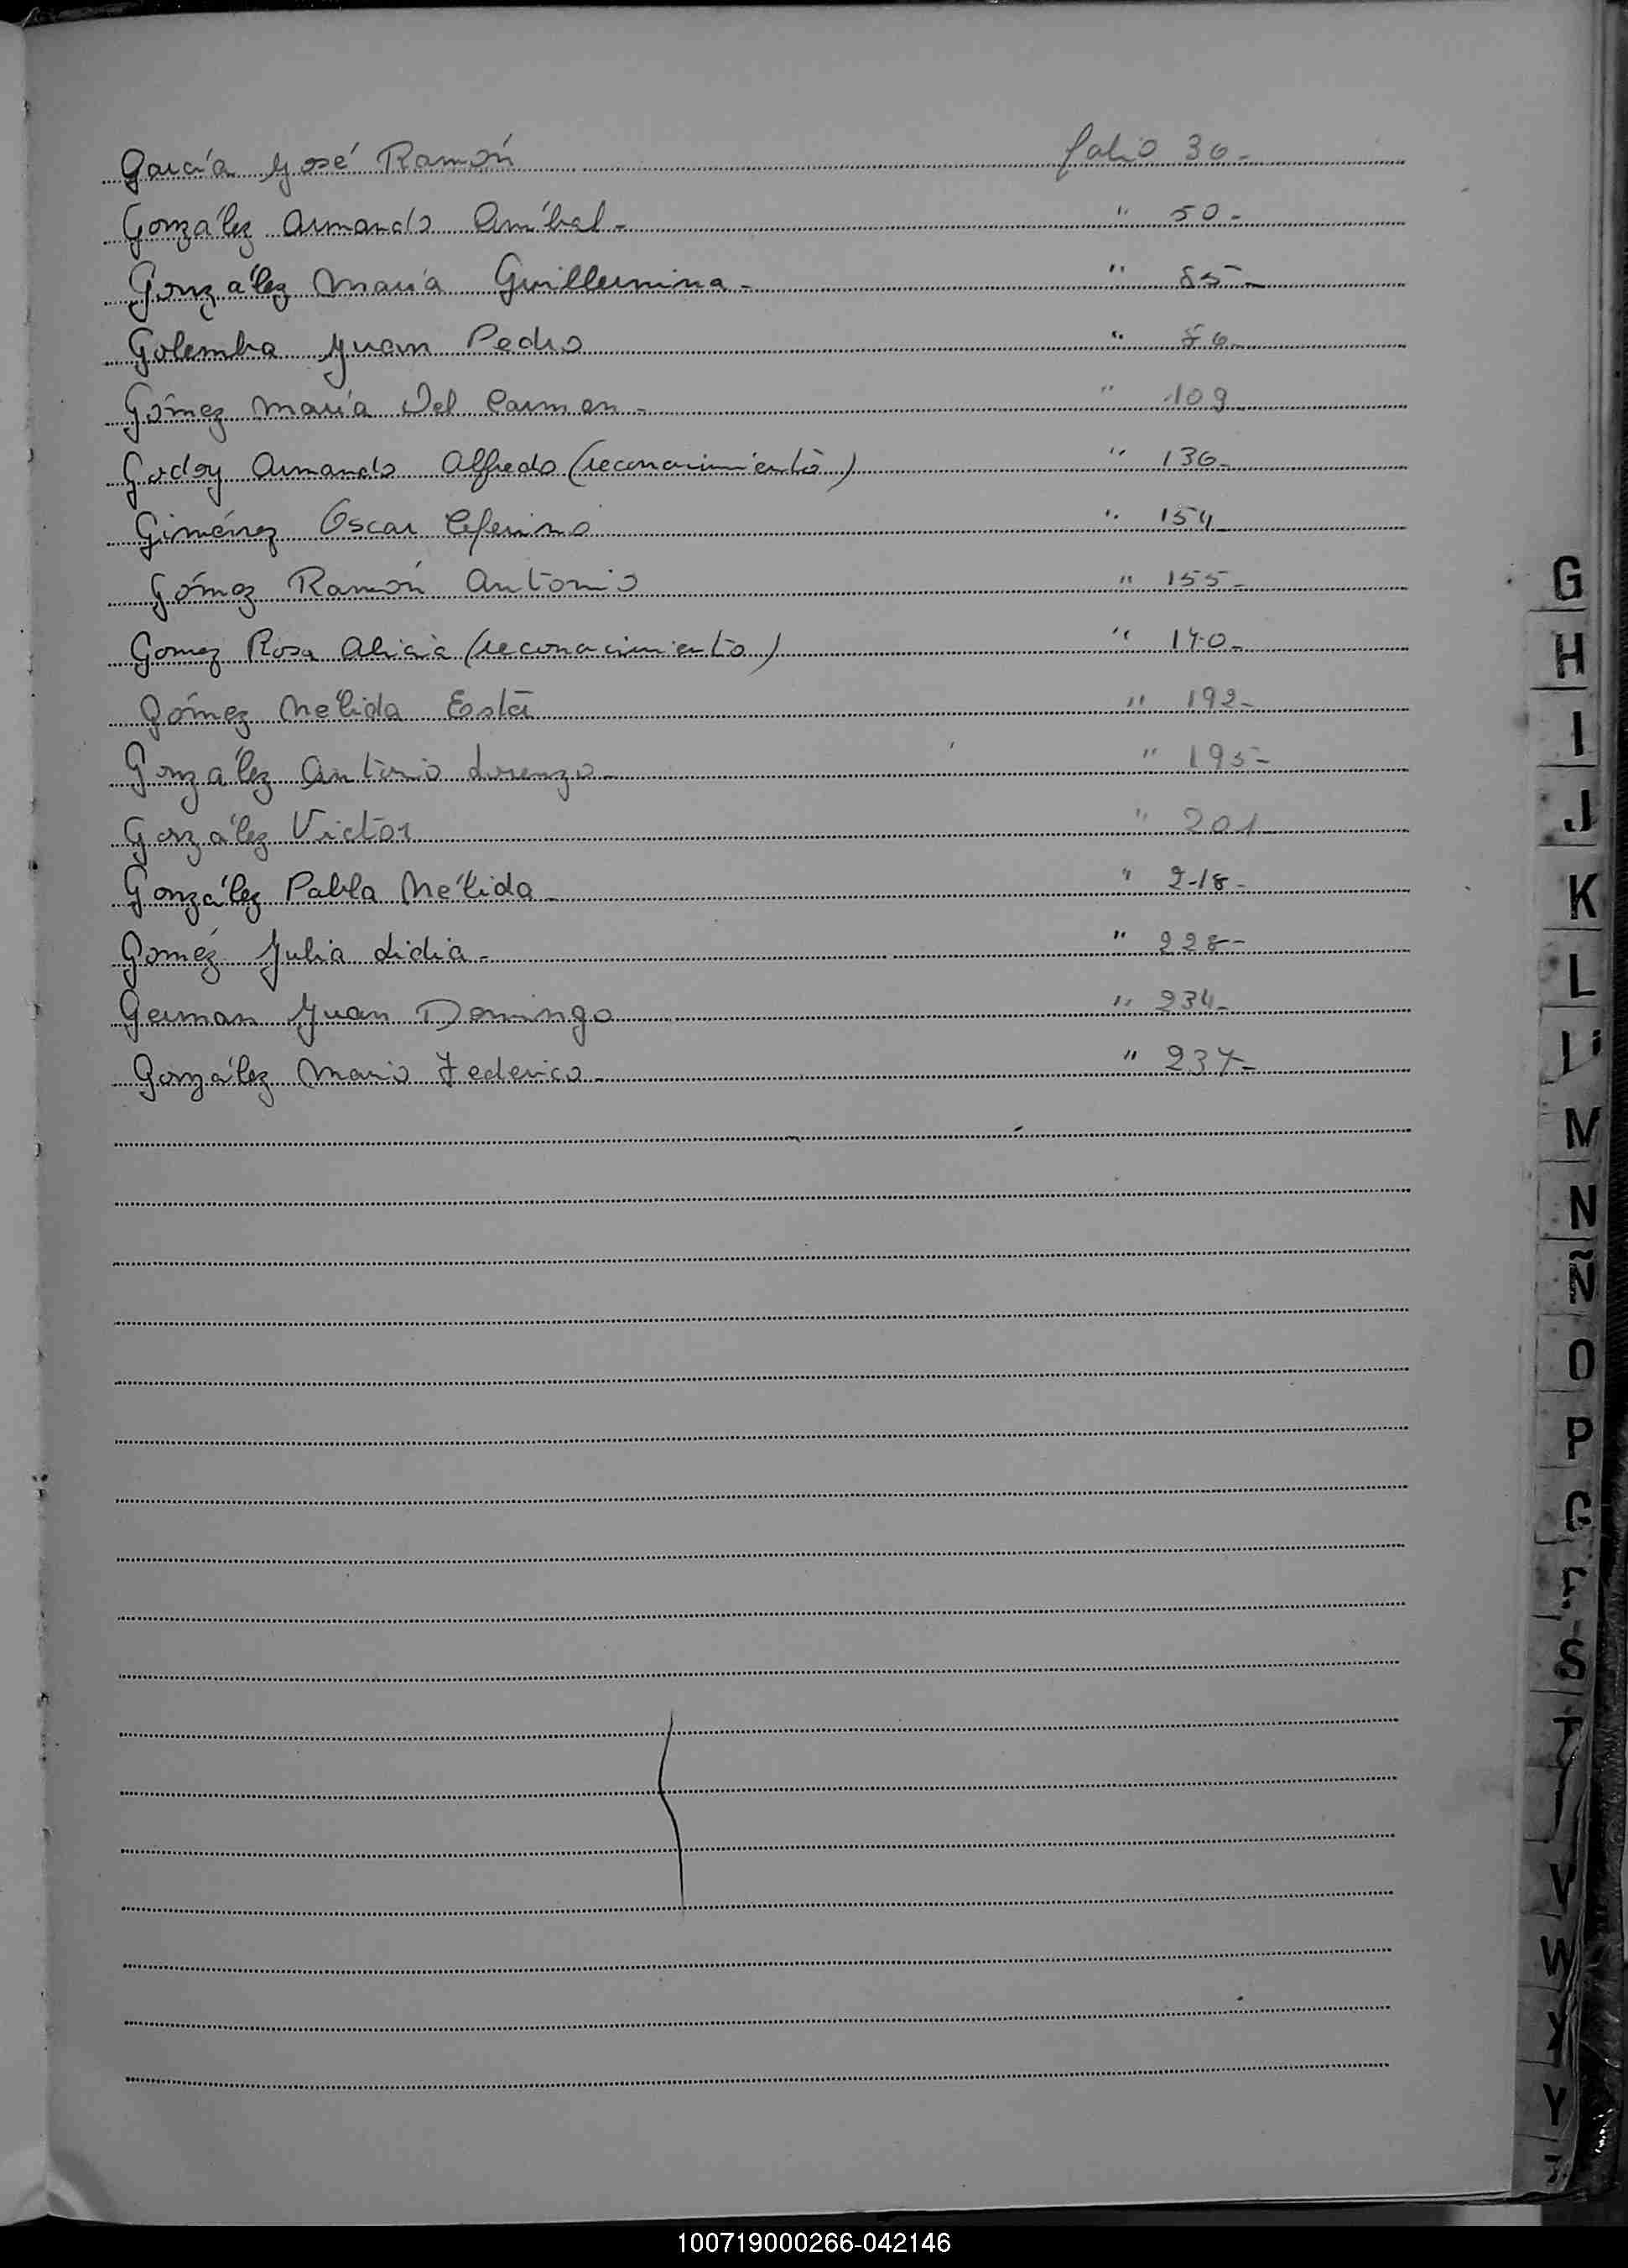 García José Ramón folio 30-
González Armando Aníbal- " 50-
González María Guillermina- " 55-
Golemba Juan Pedro "
Gómez María Del Carmen- " 109
Godoy Armando Alfredo (reconocimiento) " 130-
Giménez Oscar Ceferino " 154
Gómez Ramón Antonio " 155-
Gomez Rosa Alicia (reconocimiento) " 170-
Gómez Nélida Ester " 192-
González Antonio Lorenzo- " 195-
González Victor " 201
González Pabla Nélida " 218-
Goméz Julia Lidia- " 228-
German Juan Domingo " 234-
González Mario Federico- " 237-
G
H
I
J
K
L
M
N
Ñ
O
P
S
T
V
W
X
Y
100719000266-042146